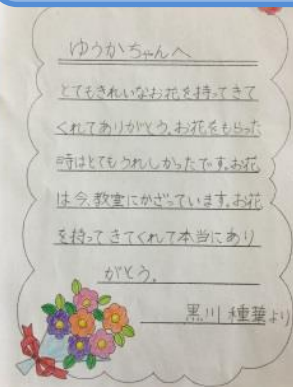 ゆうかちゃんへ
とてもきれいなお花を持ってきて
くれてありがとう。お花をもらった
時はとてもうれしかったです。お花
は今、教室にかざっています。お花
を持ってきてくれて本当にあり
がとう。
黒川 種華より